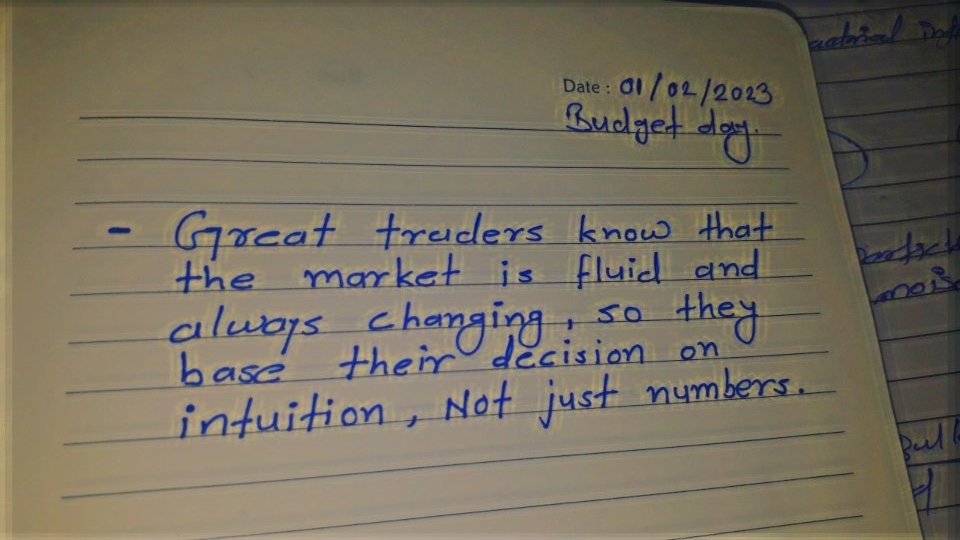 Date : 01/02/2023
Budget day.
- Great traders know that
the market is fluid and
always changing, so they
base their decision on
intuition, Not just numbers.